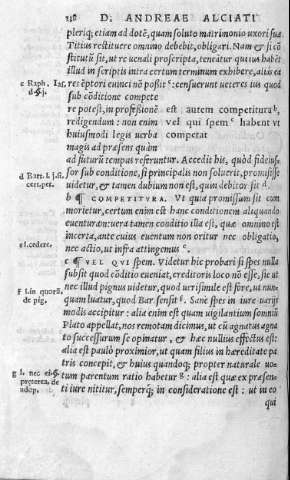 238 D. ANDREAE ALCIATI
pleriq; etiam ad dotē, quam soluto matrimonio uxori suæ
Titius restituere omnino debebit, obligari. Nam & si cō
stitutū sit, ut re uenali proscripta, teneatur quiuis habēs
illud in scriptis intra certum terminum exhibere, alius ea
c Raph. Ias. res ēptori euinci nō possit c: censuerunt ueteres ius quod
sub cōditione compete
re potest, in professionē est autem competitura b,
redigendum: non enim vel qui spem c habent ut
huiusmodi legis uerba competat
magis ad præsens quàm
ad futurū tempus referuntur. Accedit his, quòd fideius=
d Bart. l. j. si. sor sub conditione, si principalis non soluerit, promisisse
cert. pet. uidetur, & tamen dubium non est, quin debitor sit d.
b ¶ COMPETITVRA. Vt quia promissum sit cum
morietur, certum enim est hanc conditionem aliquando
euenturam: uerā tamen conditio illa est, quæ omnino est
e l. cedere. incerta, ante cuius euentum non oritur nec obligatio,
nec actio, ut infra attingemus e.
c ¶ VEL QVI spem. Videtur hîc probari si spes nulla
subsit quod cōditio eueniat, creditoris loco nō esse, sic ut
f l. in quorū. nec illud pignus uidetur, quod uerisimile est fore, ut nun=
de pig. quam luatur, quod Bar. sensit f. Sanè spes in iure uarijs
modis accipitur: alia enim est quam uigilantium somniū
Plato appellat, nos remotam dicimus, ut cū agnatus agna
to successurum se opinatur, & hæc nullius effectus est:
alia est paulò proximior, ut quam filius in hæreditate pa
tris concepit, & huius quandoq; propter naturale uo=
g l. nec ei. §. tum parentum ratio habetur g: alia est quæ ex præsen
præterea. de ti iure nititur, semperq; in consideratione est: ut in eo
adop. qui